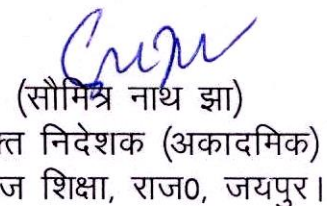 (सौमित्र नाथ झा)
निदेशक (अकादमिक)
शिक्षा, राज0, जयपुर।